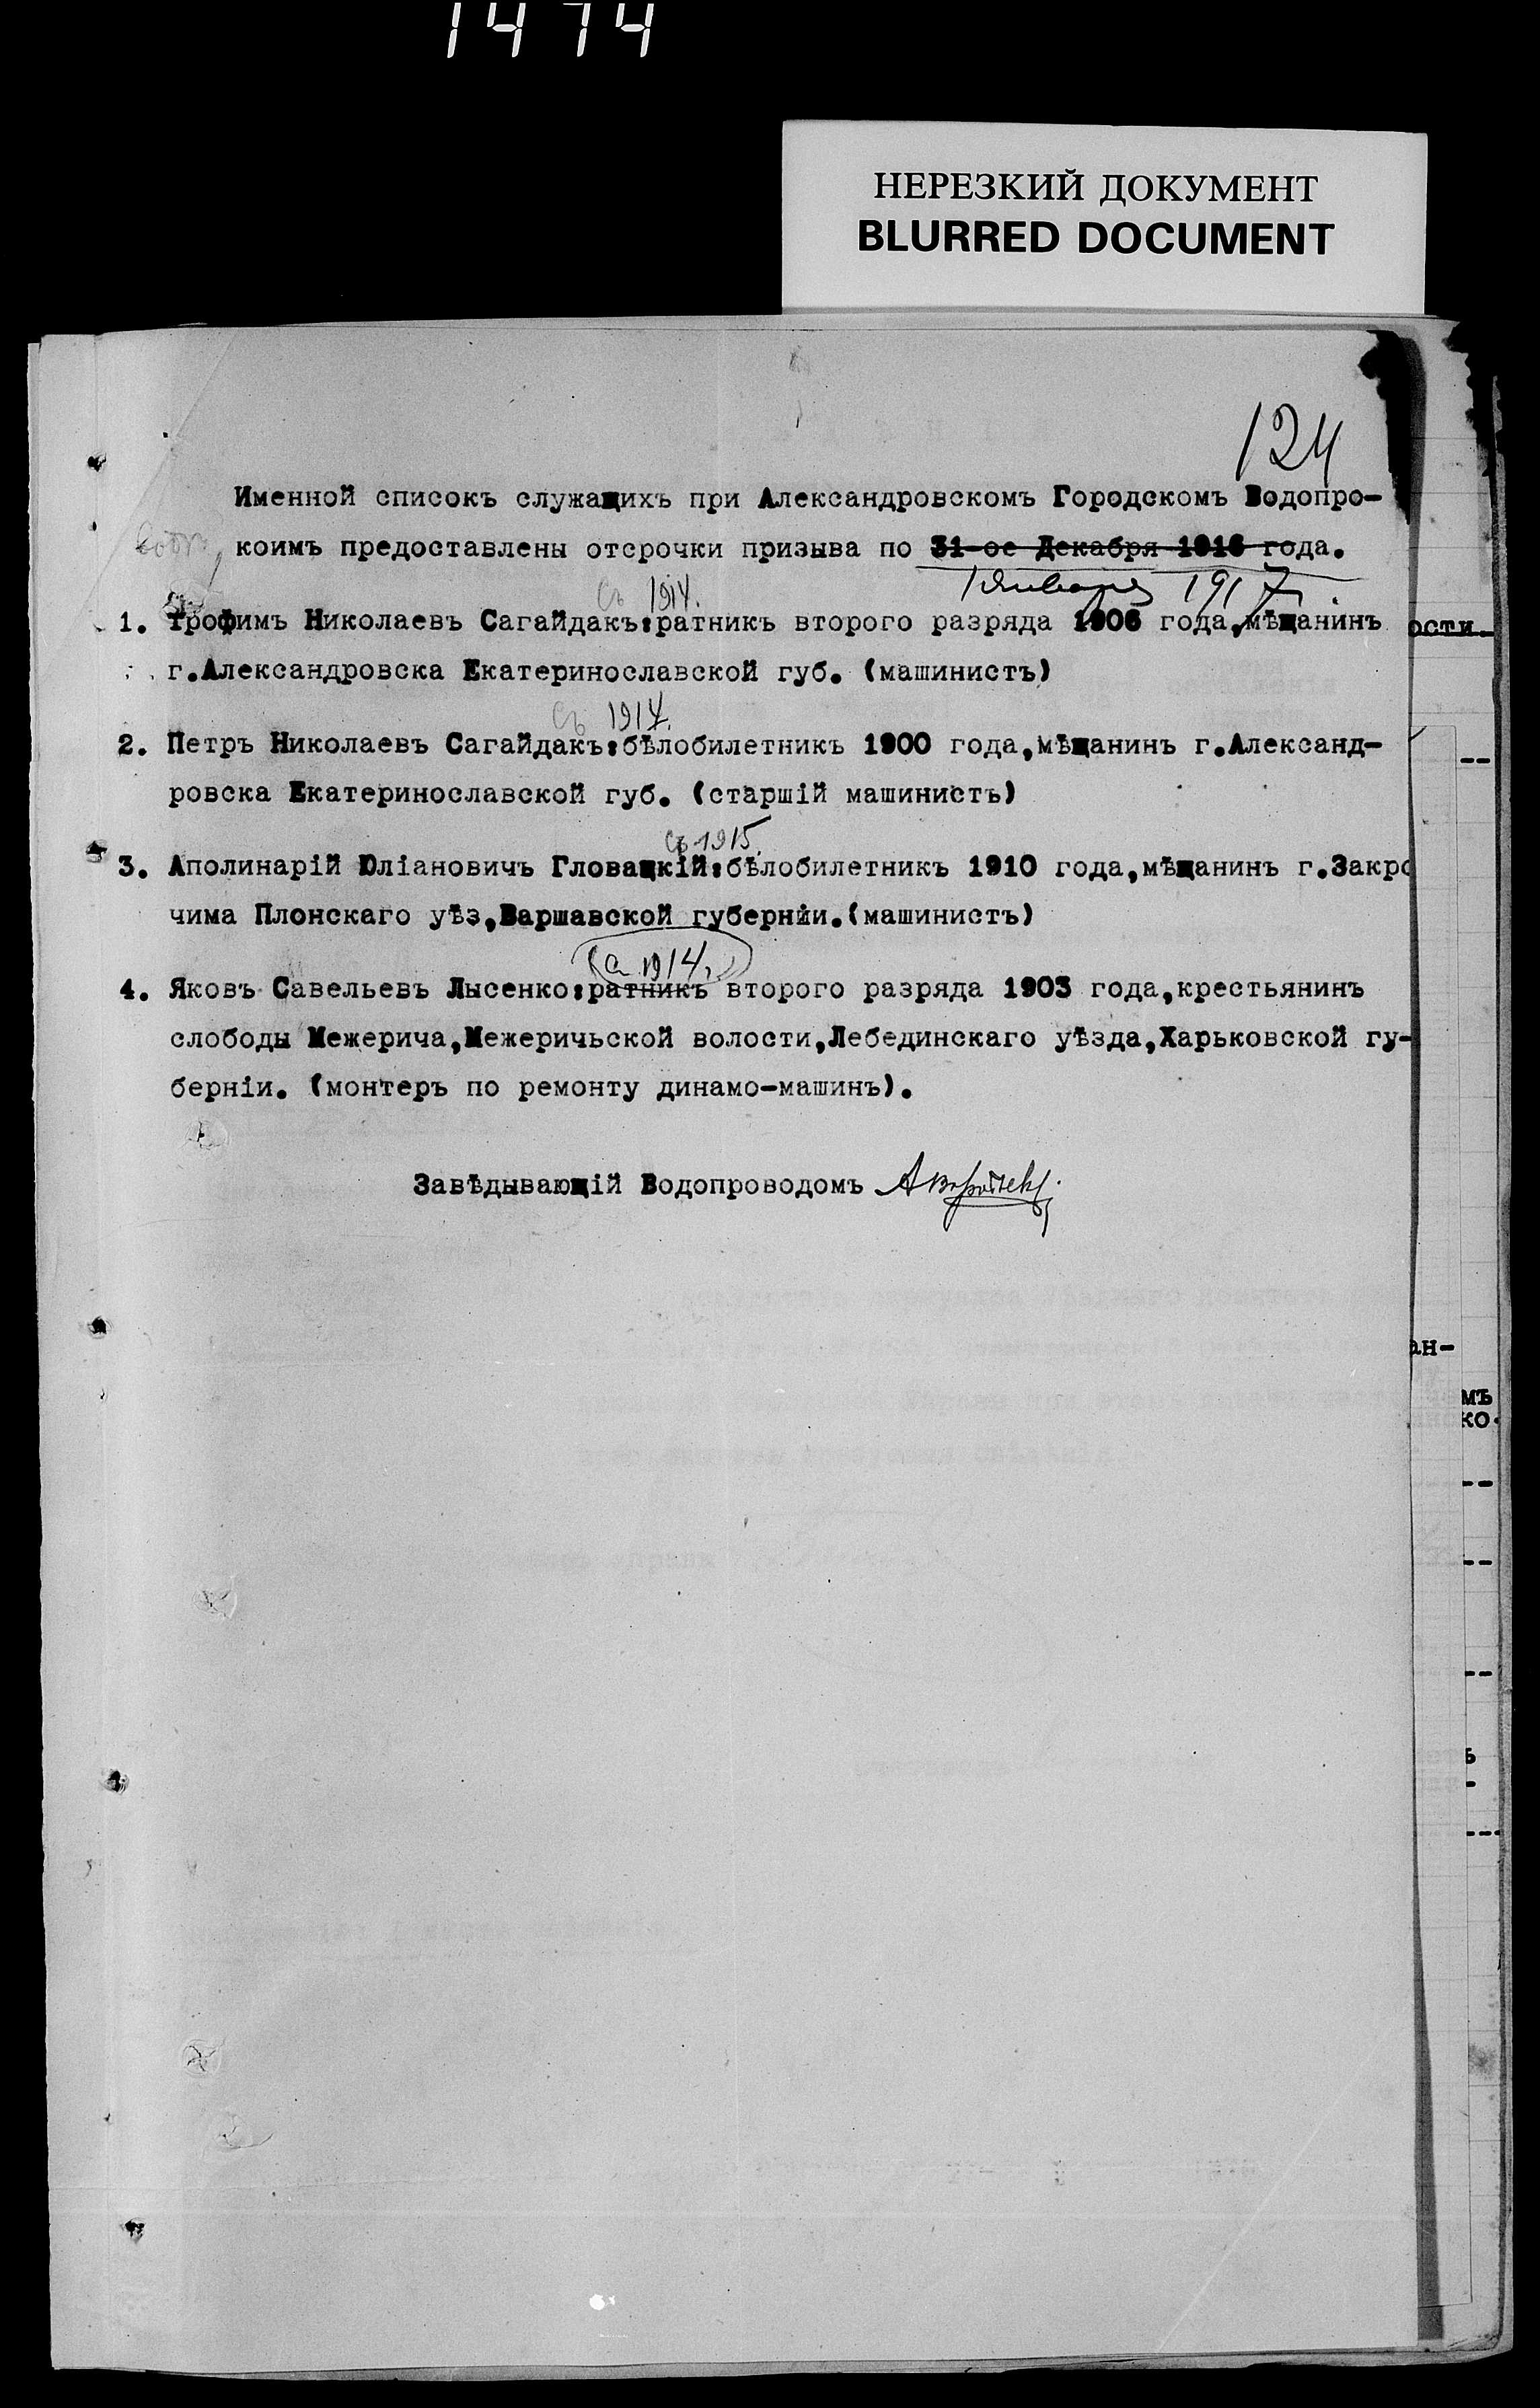 1474
НЕРЕЗКИЙ ДОКУМЕНТ
BLURRED DOCUMENT
124
Именной списокъ служащихъ при Александровскомъ Городскомъ Водопро-
коимъ предоставлены отсрочки призыва по 31-ое Декабря 1916 года.
1 Января 1917
съ 1914.
1. Трофимъ Николаевъ Сагайдакъ:ратникъ второго разряда 1906 года,мѣщанинъ
г.Александровска Екатеринославской губ. (машинистъ)
съ 1914.
2. Петръ Николаевъ Сагайдакъ:бѣлобилетникъ 1900 года,мѣщанинъ г.Александ-
ровска Екатеринославской губ. (старшій машинистъ)
съ 1915.
3. Аполинарій Юліановичъ Гловацкій:бѣлобилетникъ 1910 года,мѣщанинъ г.Закро
чима Плонскаго уѣз,Варшавской губерніи.(машинистъ)
(съ 1914.)
4. Яковъ Савельевъ Лысенко:ратникъ второго разряда 1903 года,крестьянинъ
слободы Межерича,Межеричьской волости,Лебединскаго уѣзда,Харьковской гу-
берніи. (монтеръ по ремонту динамо-машинъ).
Завѣдывающій Водопроводомъ
ости
ан-
мъ
ко